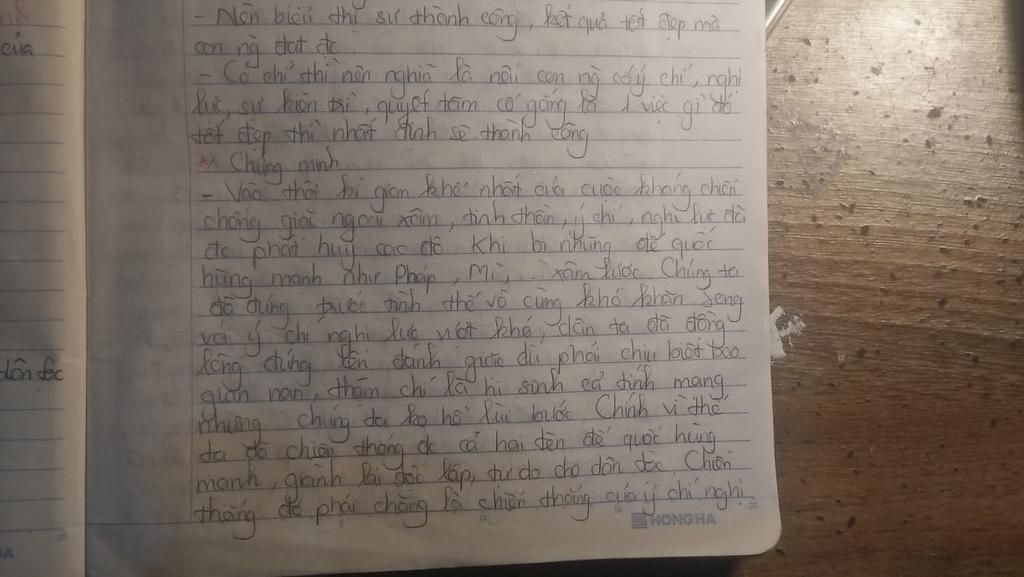 của
dân tộc
- Nên biểu thị sự thành công, kết quả tốt đẹp mà
con ng đạt đc
- Có chí thì nên nghĩa là nói con ng có ý chí, nghị
lực, sự kiên trì, quyết tâm cố gắng là 1 việc gì đó
tốt đẹp thì nhất định sẽ thành công
* Chứng minh
- Vào thời kì gian khó nhất của cuộc kháng chiến
chống giặc ngoại xâm, tinh thần, ý chí, nghị lực đã
đc phát huy cao độ. Khi bị những đế quốc
hùng mạnh như Pháp, Mĩ, ... xâm lược. Chúng ta
đã đứng trước tình thế vô cùng khó khăn song
với ý chí nghị lực vượt khó, dân ta đã đồng
lòng đứng lên đánh giặc dù phải chịu biết bao
gian nan, thậm chí là hi sinh cả tính mạng
nhưng chúng ta ko hề lùi bước. Chính vì thế
ta đã chiến thắng đc cả hai tên đế quốc hùng
mạnh, giành lại độc lập, tự do cho dân tộc. Chiến
thắng đó phải chăng là chiến thắng của ý chí nghị
HONG HA